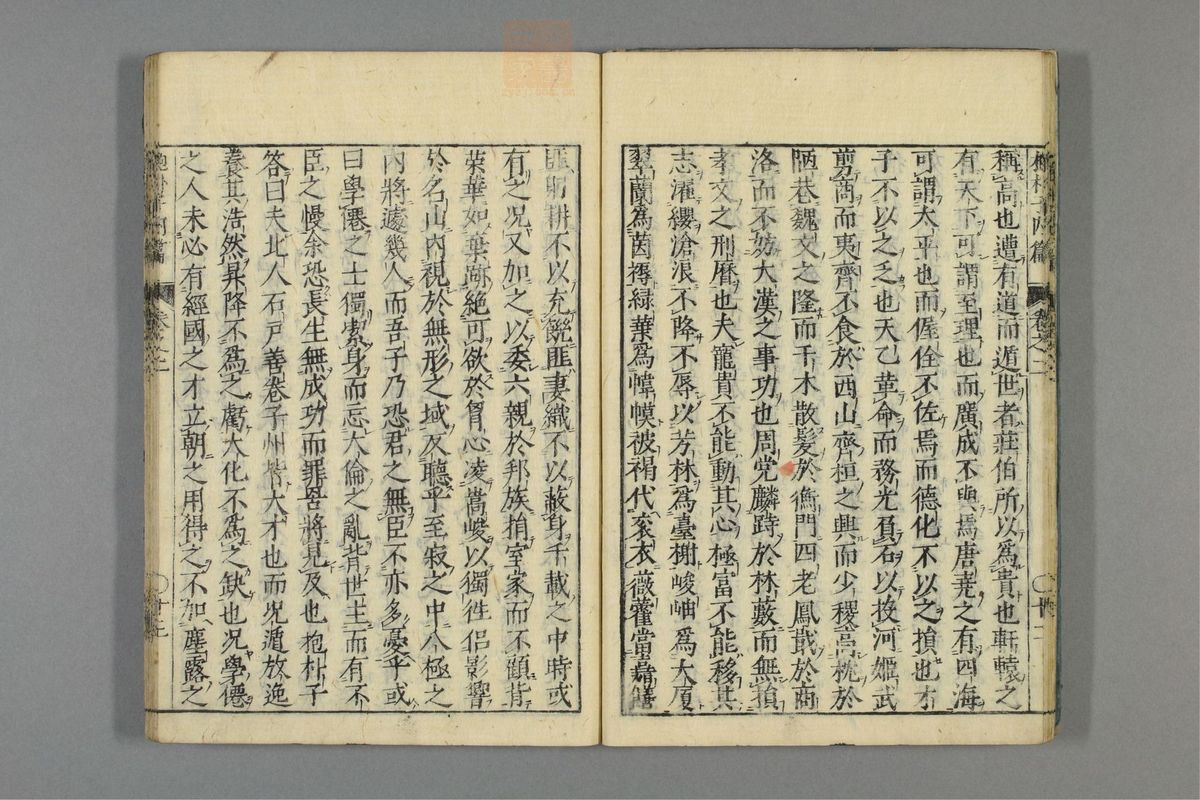 稱高也遭有道而遁世者莊伯所以爲貴也軒轅之
有天下可謂至理也而廣成不與焉唐堯之有四海
可謂太平也而偓佺不佐焉而德化不以之損也才
子不以之乏也天乙革命而務光負石以投河姬武
剪商而夷齊不食於西山齊桓之興而少稷高枕於
陋巷魏文之隆而干木散髮於衡門四老鳳戢於商
洛而不妨大漢之事功也周党麟跱於林藪而無損
孝文之刑厝也夫寵貴不能動其心極富不能移其
志濯纓滄浪不降不辱以芳林爲臺榭峻岫爲大厦
翠蘭爲茵褥緑葉爲幃幙被褐代衮衣薇藿當嘉膳
匪躬耕不以充饑匪妻織不以蔽身千載之中時或
有之况又加之以委六親於邦族捐室家而不顧背
榮華如棄跡絶可欲於胷心凌嵩峻以獨徃侣影響
於名山内視於無形之域反聽乎至寂之中八極之
内將遽幾人而吾子乃恐君之無臣不亦多憂乎或
曰學僊之士獨潔身而忘大倫之亂背世主而有不
臣之慢余恐長生無成功而罪罟將見及也抱朴子
答曰夫北人石戸善卷子州皆大才也而况遁放逸
養其浩然昇降不爲之虧大化不爲之缺也况學僊
之人未必有經國之才立朝之用得之不加塵露之